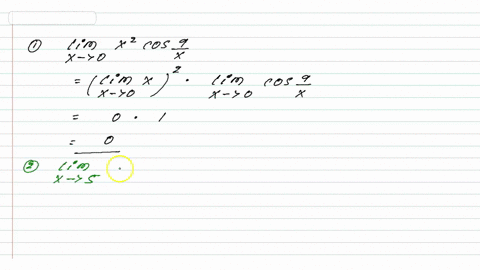 ① lim x→0 x² cos 9/x
= (lim x→0 x)² · lim x→0 cos 9/x
= 0 · 1
= 0
② lim x→5